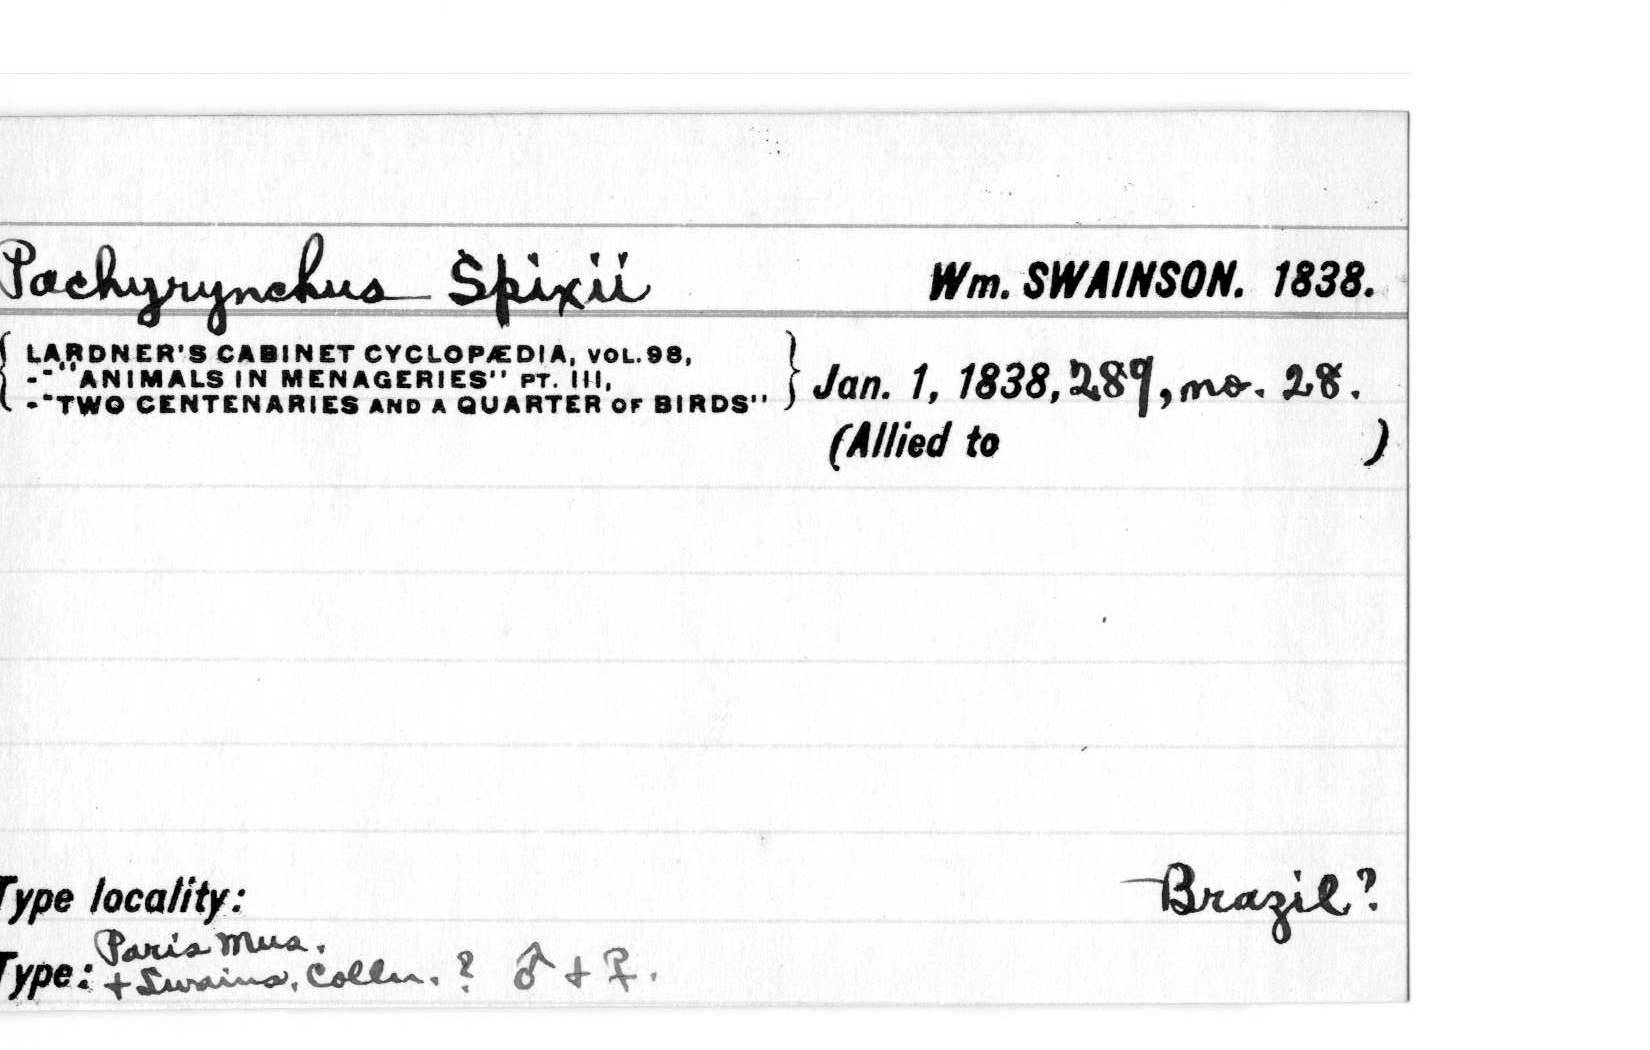 Pachyrynchus Spixii Wm. SWAINSON. 1838.
{ LARDNER'S CABINET CYCLOPÆDIA, VOL. 98, }
-"ANIMALS IN MENAGERIES" PT. III,
-"TWO CENTENARIES AND A QUARTER OF BIRDS" Jan. 1, 1838, 289, no. 28.
(Allied to )
Type locality: Brazil?
Paris Mus.
Type: + Swains. Colln. ? ♂ + ♀.